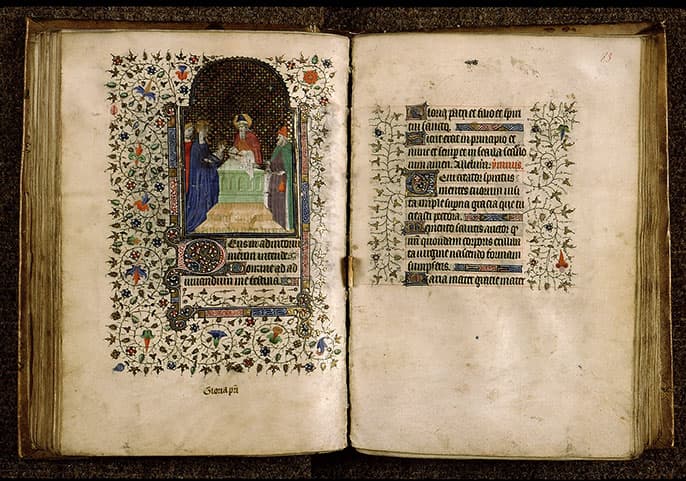 Deus in adiutoriū
meum intende.
Domine ad ad
iuuandum me festina.
Gloria pri
83
Gloria patri et filio et spiri
tui sancto.
Sicut erat in principio et
nunc et semp et in secula seculo
rum amen. Alleluia.
Veni creator spiritus
mentes tuorum uisi
ta imple supna gracia que tu
creasti pectora.
Memento salutis auctor q
nr̄i quondam corporis ex illiba
ta uirgine nascendo formam
sumpseris.
Maria mater gracie mater